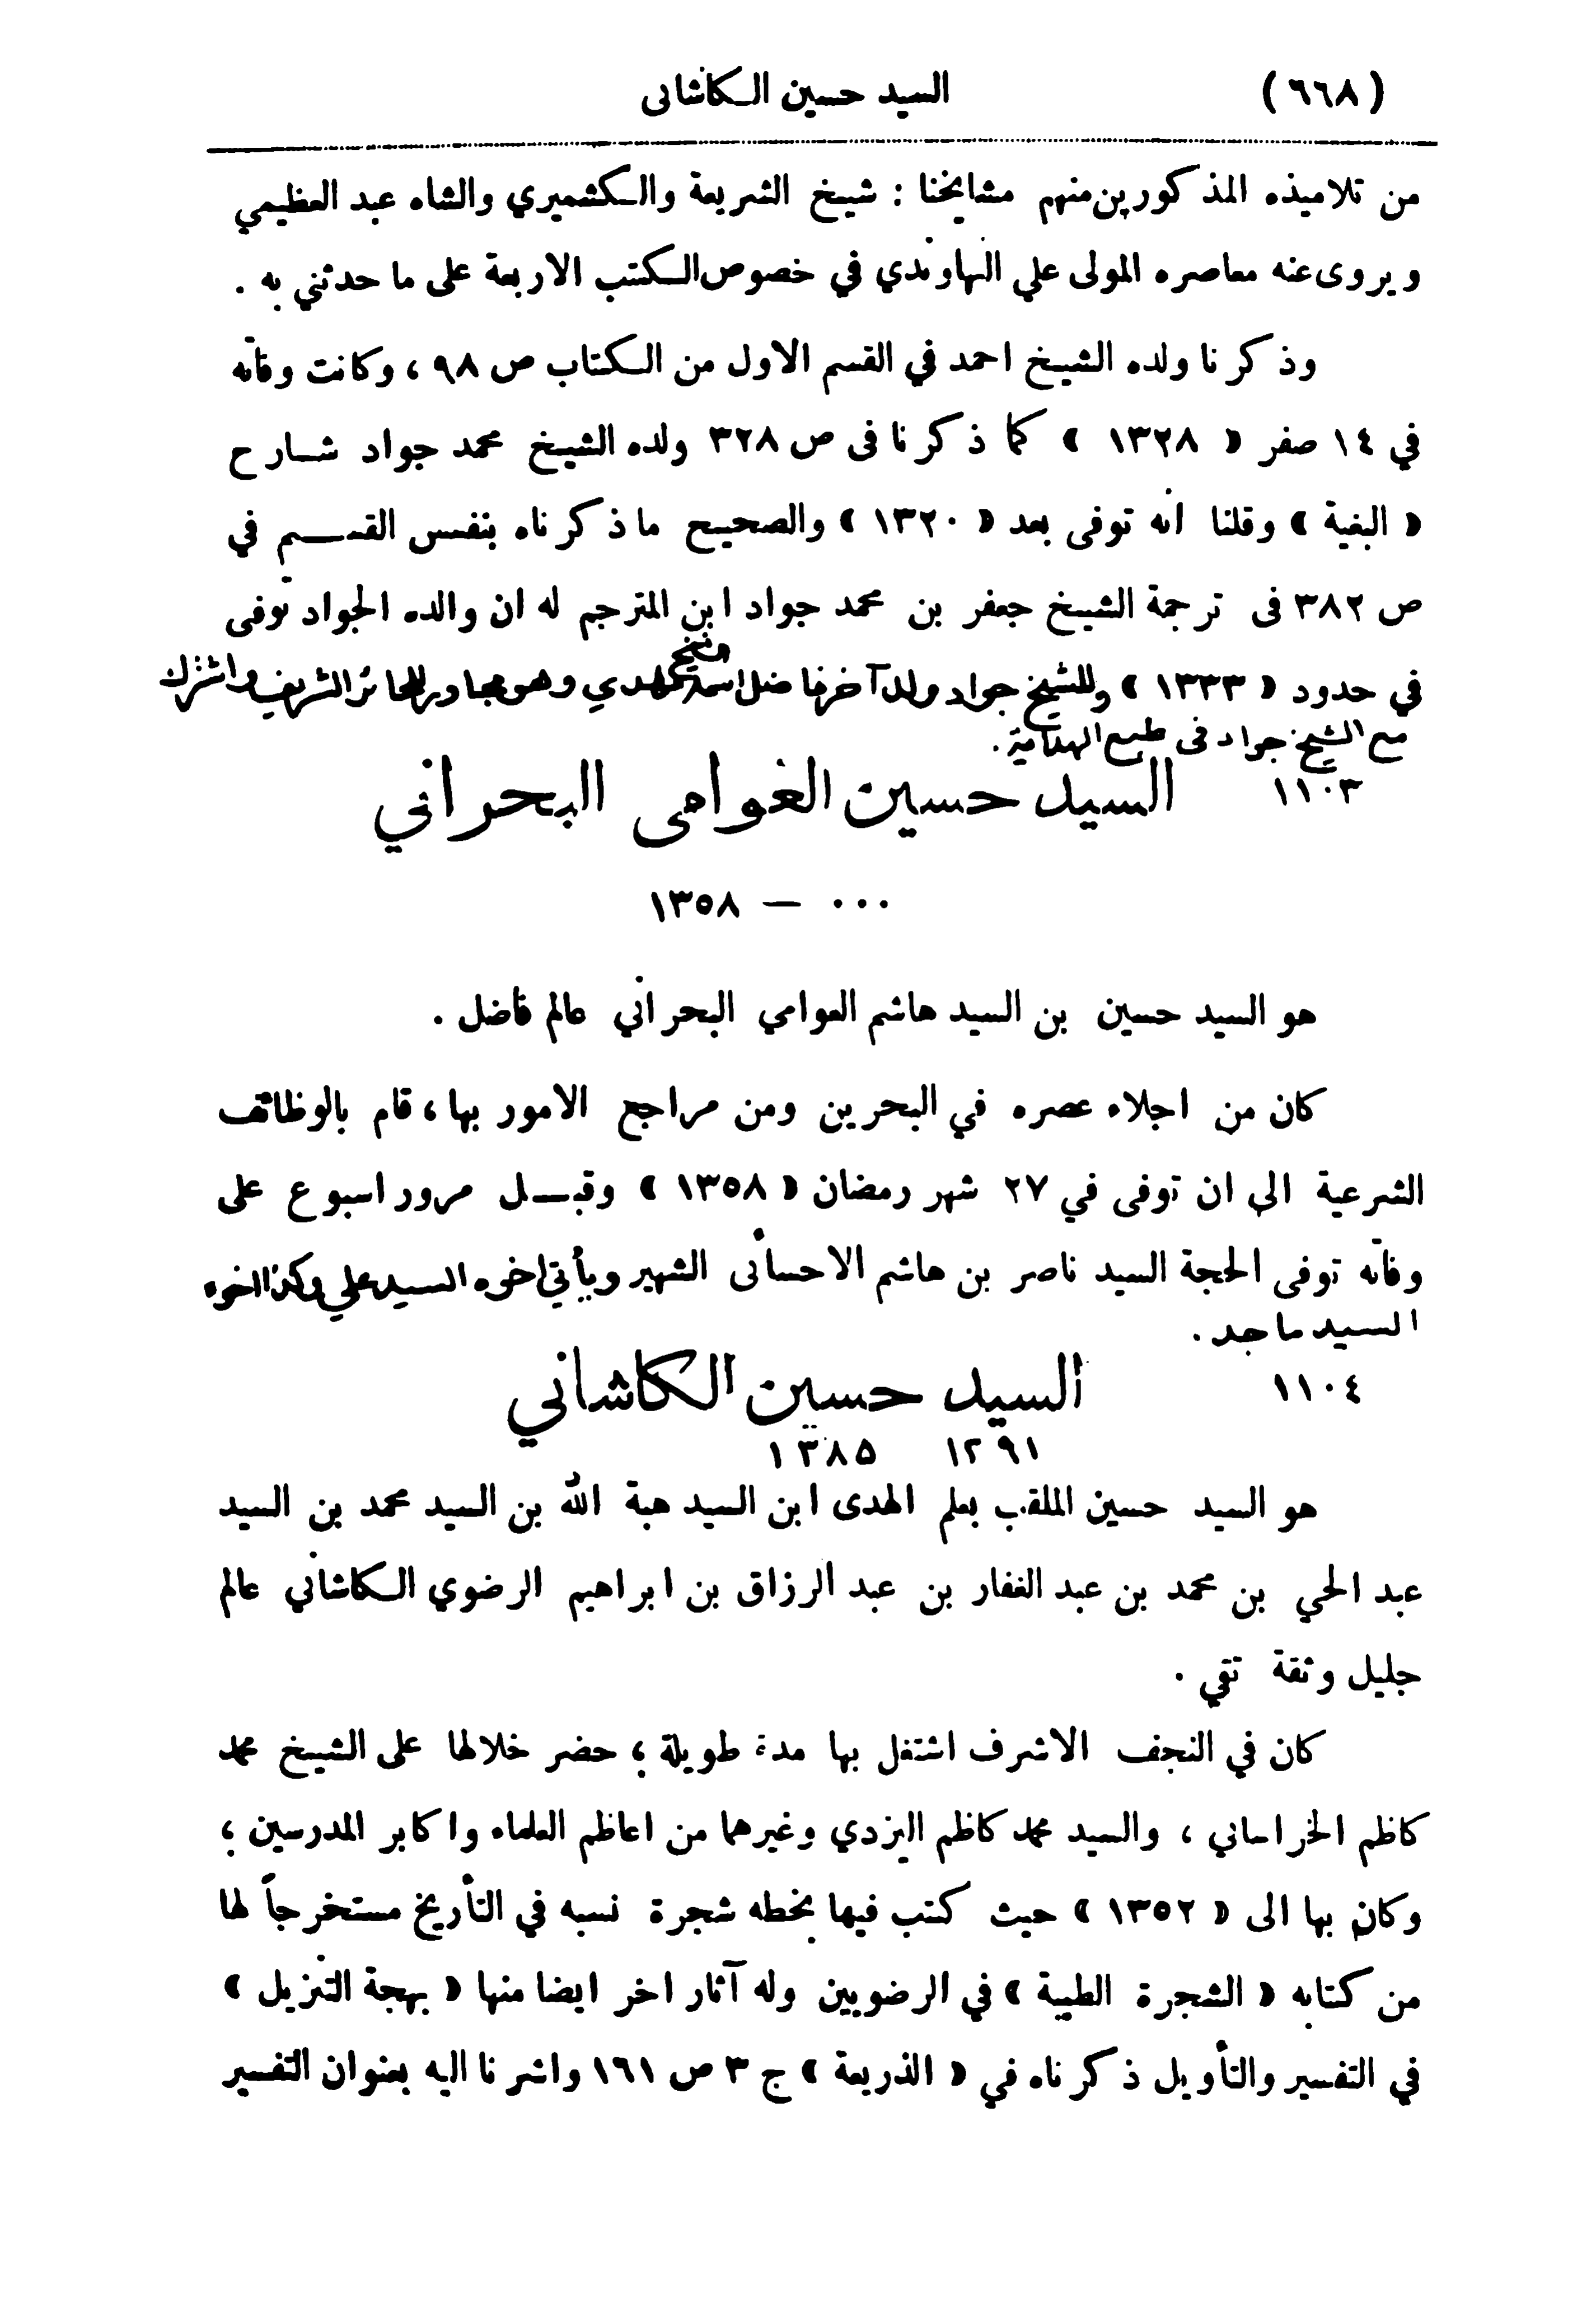 (٦٦٨) السيد حسين الكاشانى
من تلاميذه المذكورين منهم مشايخنا : شيخ الشريعة والكشميري والشاه عبد العظيمي
ويروى عنه معاصره المولى علي النهاوندي في خصوص الكتب الاربعة على ما حدثني به .
وذكرنا ولده الشيخ احمد في القسم الاول من الكتاب ص ٩٨ ، وكانت وفاته
في ١٤ صفر « ١٣٢٨ » كما ذكرنا فى ص ٣٢٨ ولده الشيخ محمد جواد شارح
« البغية » وقلنا انه توفى بعد « ١٣٢٠ » والصحيح ما ذكرناه بنفس القسم في
ص ٣٨٢ فى ترجمة الشيخ جعفر بن محمد جواد ابن المترجم له ان والده الجواد توفى
في حدود « ١٣٣٣ » وللشيخ جواد ولد آخر فاضل اسمه الشيخ مهدي وهو مجاور للحائر الشريف واشترك
مع الشيخ جواد فى طبع الهداية .
١١٠٣ السيد حسين الغوامي البحراني
٠٠٠ — ١٣٥٨
هو السيد حسين بن السيد هاشم العوامي البحراني عالم فاضل .
كان من اجلاء عصره في البحرين ومن مراجع الامور بها ، قام بالوظائف
الشرعية الى ان توفى في ٢٧ شهر رمضان « ١٣٥٨ » وقبل مرور اسبوع على
وفاته توفى الحجة السيد ناصر بن هاشم الاحسائى الشهير ويأتي اخوه السيد علي وكذا اخوه
السيد ماجد .
١١٠٤ السيد حسين الكاشاني
١٢٩١ ١٣٨٥
هو السيد حسين الملقب بعلم الهدى ابن السيد هبة الله بن السيد محمد بن السيد
عبد الحي بن محمد بن عبد الغفار بن عبد الرزاق بن ابراهيم الرضوي الكاشاني عالم
جليل وثقة تقي .
كان في النجف الاشرف اشتغل بها مدة طويلة ؛ حضر خلالها على الشيخ محمد
كاظم الخراساني ، والسيد محمد كاظم اليزدي وغيرهما من اعاظم العلماء واكابر المدرسين ؛
وكان بها الى « ١٣٥٢ » حيث كتب فيها بخطه شجرة نسبه في التأريخ مستخرجاً لها
من كتابه « الشجرة الطيبة » في الرضويين وله آثار اخر ايضا منها « بهجة التنزيل »
في التفسير والتأويل ذكرناه في « الذريعة » ج ٣ ص ١٦١ واشرنا اليه بعنوان التفسير